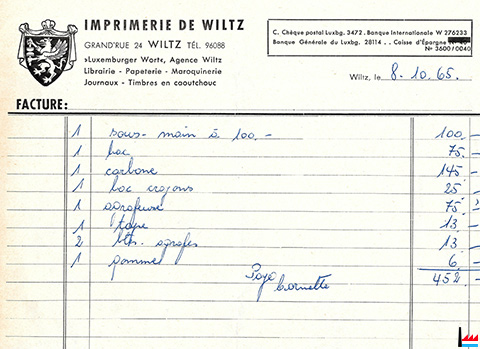 IMPRIMERIE DE WILTZ
GRAND'RUE 24 WILTZ TÉL. 96088
»Luxemburger Wort«, Agence Wiltz
Librairie - Papeterie - Maroquinerie
Journaux - Timbres en caoutchouc
C. Chèque postal Luxbg. 3472 . Banque Internationale W 276233
Banque Générale du Luxbg. 28114 . . Caisse d'Épargne
Nº 3600/0040
Wiltz, le 8.10.65.
FACTURE:
1 sous-main à 100.- 100.-
1 bac 75.-
1 carbone 145.-
1 bac crayons 25.-
1 agrafeuse 75.-
1 tape 13.-
2 bts. agrafes 13.-
1 gomme 6.-
452.-
Payé